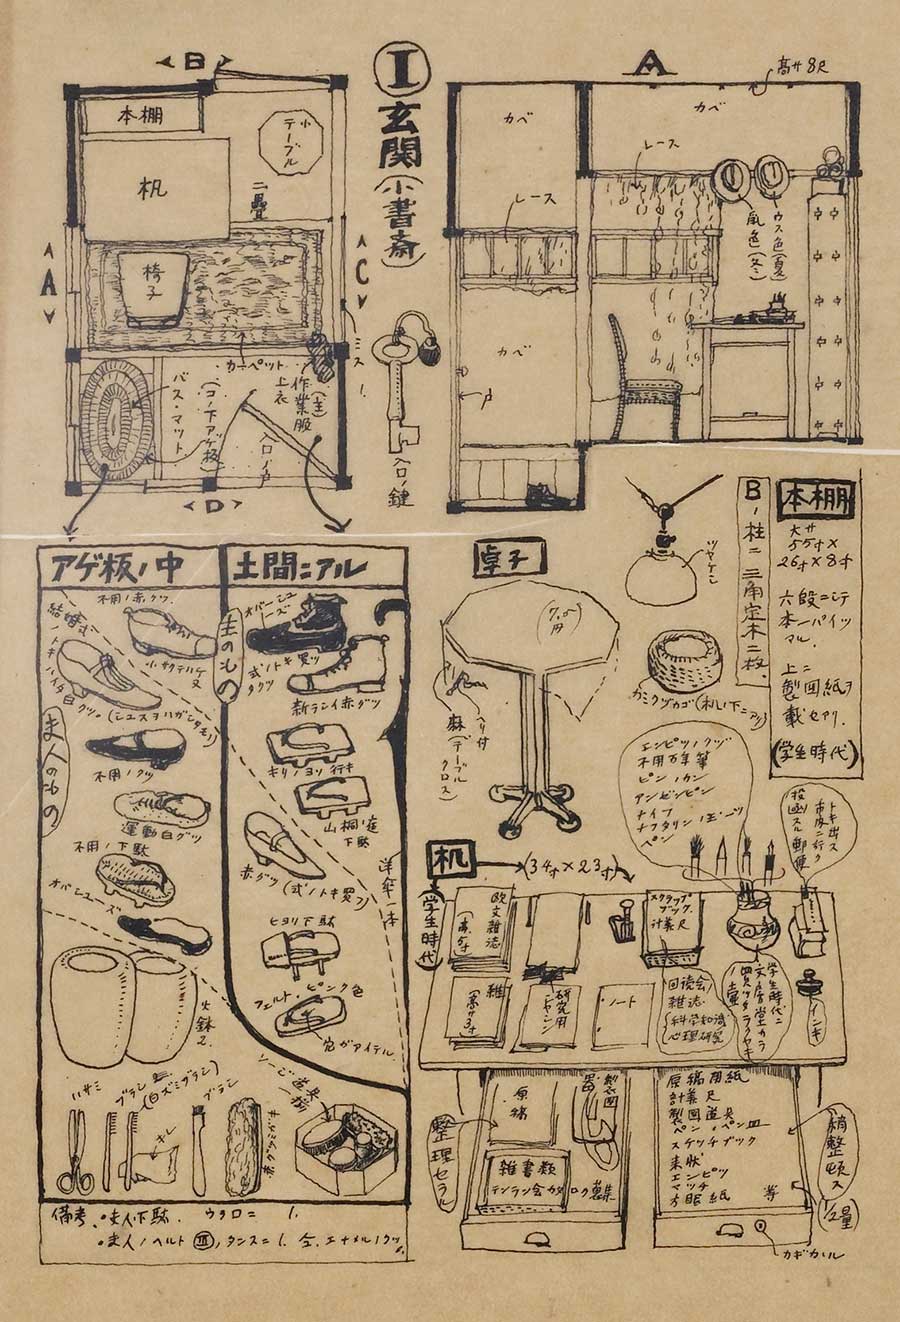 I
玄関(小書斎)
B
本棚
小テーブル
机
二畳
A
C
椅子
カーペット
バス・マット
(コノ下アゲ板)
作業服(主)
上衣
入口ノ戸
D
入口ノ鍵
A
高サ8尺
カベ
カベ
レース
レース
ウス色(夏)
鼠色(冬)
カベ
戸
アゲ板ノ中
不用ノ赤クツ
小サクテハケヌ
不用ノクツ
夫人のもの
運動白グツ
不用ノ下駄
オバシューズ
火鉢2.
土間ニアル
主のもの
オバーシューズ
新ランイ赤グツ
キリノヨソ行キ
山桐ノ庭下駄
赤グツ
(式ノトキ買フ)
洋傘一本
ヒヨリ下駄
フェルト・ピンク色
穴ガアイテル
ハサミ
ブラシ
ブラシ
キレ
備考.
夫人下駄.
1.
卓子
7.5円
ヘリ付
麻(テーブルクロス)
ツヤケシ
カミクヅカゴ(机ノ下ニアリ)
Bノ柱ニ三角定木二枚
本棚
大サ
55寸×
26寸×8寸
六段ニシテ
本一パイツマル.
上ニ
製図紙ヲ
載セアリ.
(学生時代)
エンピツノクヅ
不用万年筆
ピンノカン
アンゼンピン
ナイフ
ペン
トキ出ス
市内ニ行ク
投函スル郵便
机
(34寸×23寸)
(学生時代)
欧文雑誌
(高サ5寸)
スクラップブック.
計算尺
雑
(高サ3寸)
研究用
ノート
回読会ノ
雑誌.
科学知識
心理研究
学生時代ニ
文房堂カラ
買ツタラクヤキノ壷
インキ
整理セラル
原稿
製図器
雑書類
テンラン会カタロク蒐集
原稿用紙
計算尺
製図道具
ペン・ペン皿
スケッチブック
来状
エンピツ
マッチ
方眼紙
等
1/2量
カギカカル